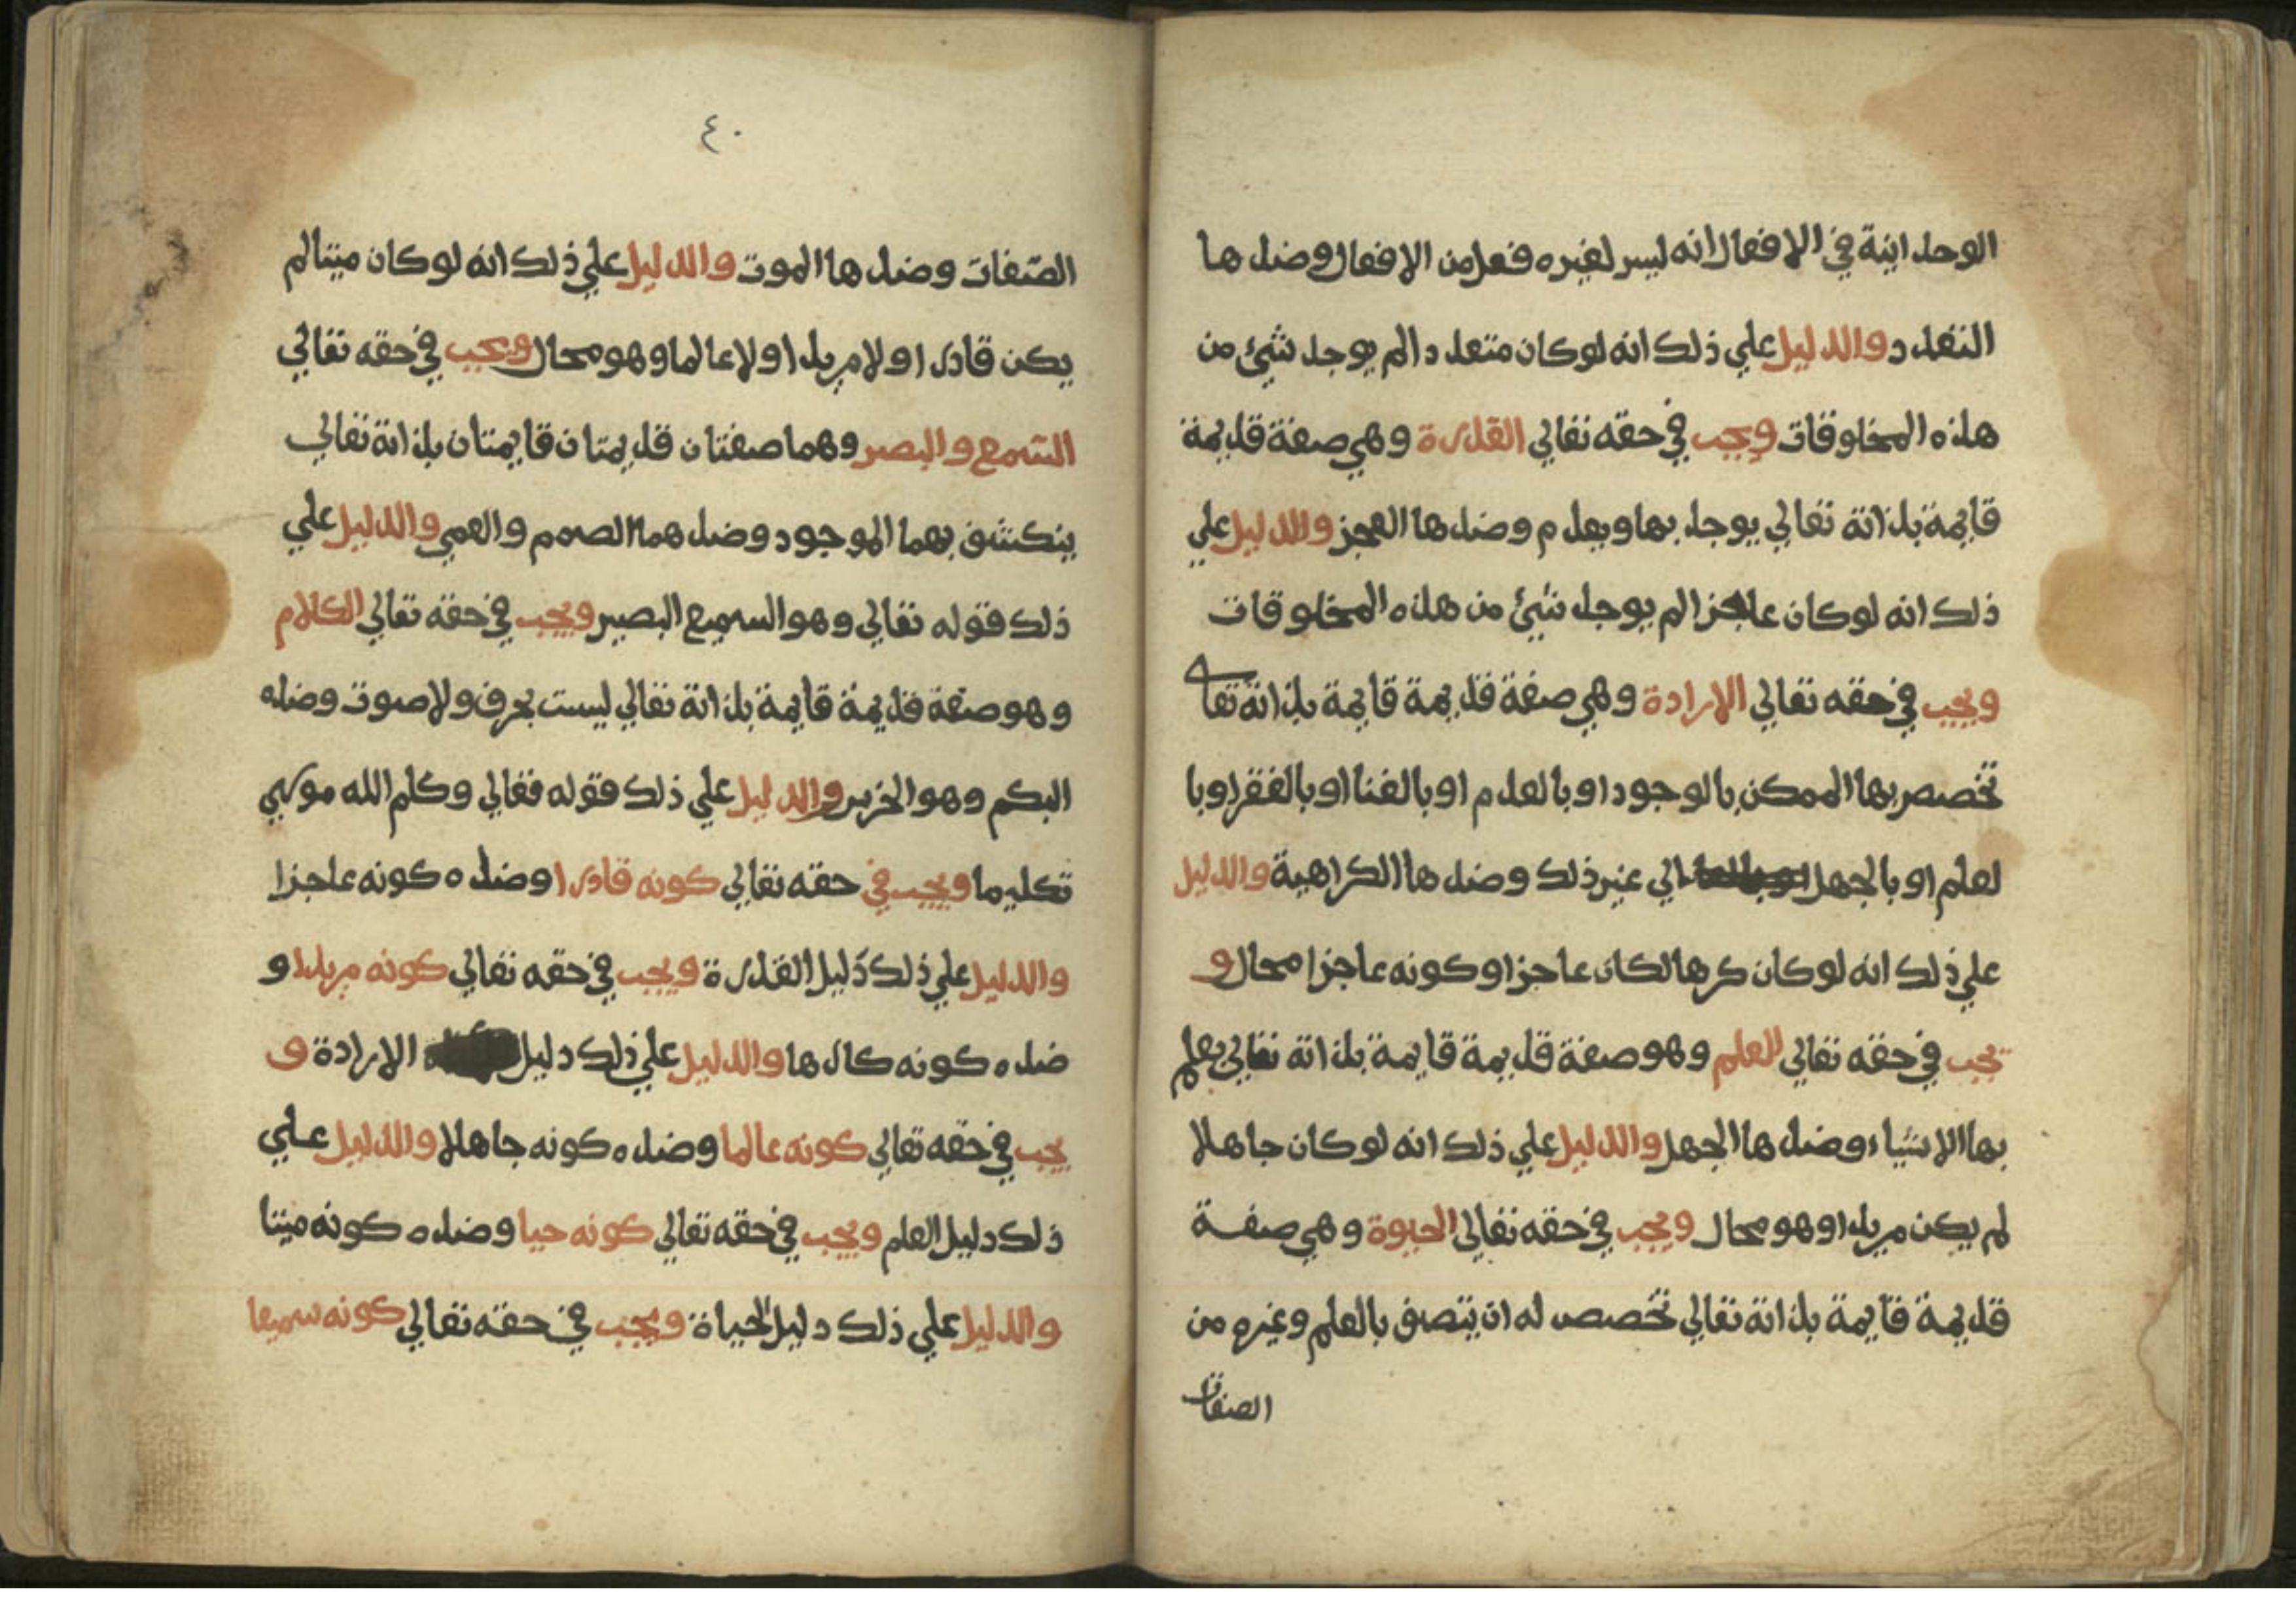 الوحدانية في الافعال انه ليس لغيره فعل من الافعال وضدها
التعدد والدليل علي ذلك انه لو كان متعددا لم يوجد شيئ من
هذه المخلوقات ويجب في حقه تعالي القدرة وهي صفة قديمة
قايمة بذاته تعالي يوجد بها ويعدم وضدها العجز والدليل علي
ذلك انه لو كان عاجزا لم يوجد شيئ من هذه المخلوقات
ويجب في حقه تعالي الارادة وهي صفة قديمة قايمة بذاته تعا
تخصص بها الممكن بالوجود او بالعدم او بالغنا او بالفقر او با
لعلم او بالجهل الي غير ذلك وضدها الكراهية والدليل
علي ذلك انه لو كان كرها لكان عاجزا وكونه عاجزا محال و
يجب في حقه تعالي العلم وهو صفة قديمة قايمة بذاته تعالي يعلم
بها الاشياء وضدها الجهل والدليل علي ذلك انه لو كان جاهلا
لم يكن مريدا وهو محال ويجب في حقه تعالي الحيوة وهي صفة
قديمة قايمة بذاته تعالي تخصص له ان يتصف بالعلم وغيره من
الصفات
٤٠
الصفات وضدها الموت والدليل علي ذلك انه لو كان ميتا لم
يكن قادرا ولا مريدا ولا عالما وهو محال ويجب في حقه تعالي
السمع والبصر وهما صفتان قديمتان قايمتان بذاته تعالي
ينكشف بهما الموجود وضدهما الصمم والعمي والدليل علي
ذلك قوله تعالي وهو السميع البصير ويجب في حقه تعالي الكلام
وهو صفة قديمة قايمة بذاته تعالي ليست بحرف ولا صوت وضده
البكم وهو الخرس والدليل علي ذلك قوله تعالي وكلم الله موسي
تكليما ويجب في حقه تعالي كونه قادرا وضده كونه عاجزا
والدليل علي ذلك دليل القدرة ويجب في حقه تعالي كونه مريدا و
ضده كونه كارها والدليل علي ذلك دليل الارادة و
يجب في حقه تعالي كونه عالما وضده كونه جاهلا والدليل علي
ذلك دليل العلم ويجب في حقه تعالي كونه حيا وضده كونه ميتا
والدليل علي ذلك دليل الحياة ويجب في حقه تعالي كونه سميعا